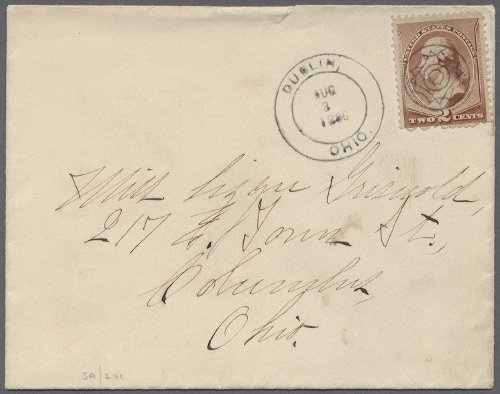 DUBLIN,
AUG
3
1886
OHIO.
UNITED STATES POSTAGE
TWO 2 CENTS
Griswold,
217 E. Town St.,
Columbus,
Ohio.
SA/201